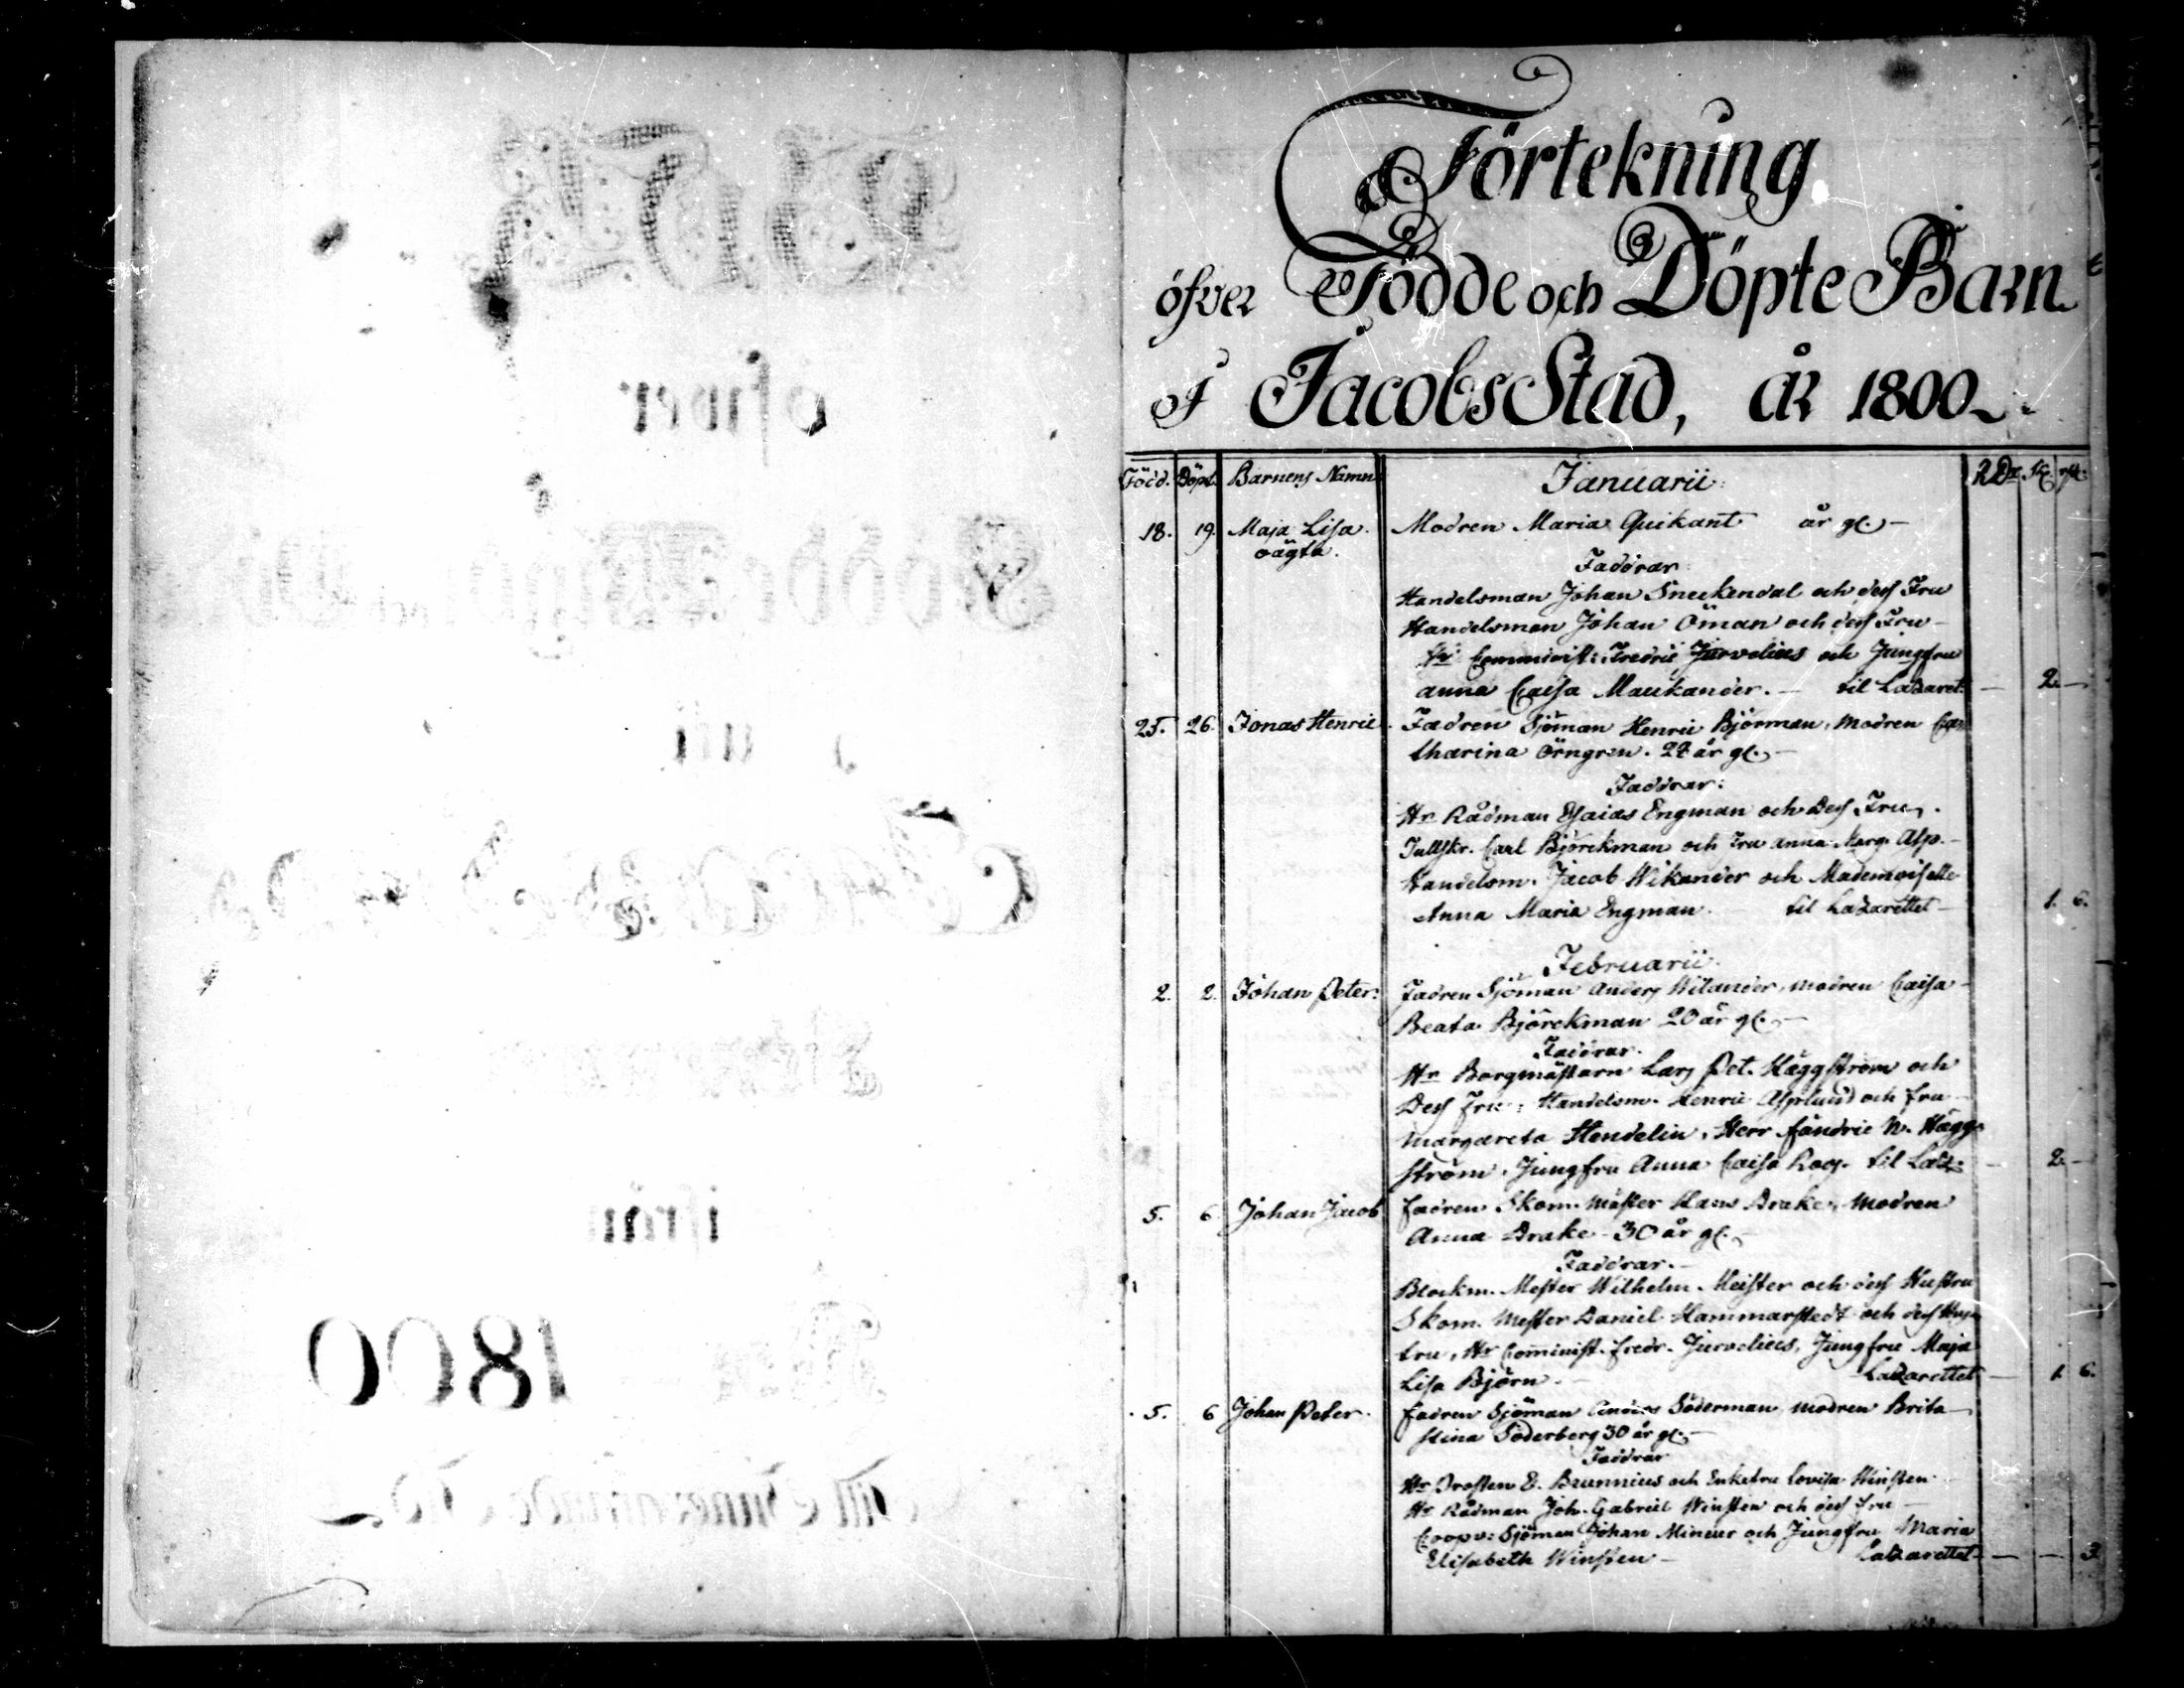 Förtekning
öfver Födde och Döpte Barn
I JacobsStad, år 1800
Född. Döpt. Barnens Namn Januarii: RDr. sk. rst.
18. 19. Maja Lisa. Modren Maria Quikant år gl.
oägta.
Faddrar:
Handelsman Johan Sneckendal och dess Fru
Handelsman Johan Öman och dess Fru
Hr Comminist: Fredric Jurvelius och Jungfru
Anna Caisa Maukander. til Lazaret: — 2. —
25. 26. Jonas Henric. Fadren Sjöman Henric Björman, Modren Ca
tharina Örngren. 24 år gl.
Faddrar:
Hr Rådman Esaias Engman och Dess Fru.
Tullskr. Carl Björckman och Fru Anna Marg. Asp.
Handelsm. Jacob Wikander och Mademoiselle
Anna Maria Engman. til Lazarettet — 1. 6.
Februarii.
2. 2. Johan Peter: Fadren Sjöman Anders Wilander, modren Caisa
Beata Björckman 20 år gl.
Faddrar.
Hr Borgmästarn Lars Pet. Häggström och
Dess Fru: Handelsm. Henric Asplund och Fru
Margareta Hendelin, Herr N. Hägg-
ström, Jungfru Anna Caisa Roos. til Laz: — 2. —
5. 6. Johan Jacob Fadren Skom. Mäster Hans Drake, Modren
Anna Drake 30 år gl.
Faddrar.
Blockm. Mester Wilhelm Meister och dess Hustru
Skom. Mester Daniel Hammarstedt och dess Hus
tru, Hr Cominist. Fredr. Jurvelius, Jungfru Maja
Lisa Björn. Lazarettet — 1. 6.
5. 6 Johan Peter. Fadren Sjöman Anders Söderman, modren Brita
Stina Söderberg 30 år gl.
Faddrar
Hr Prosten E. Brunnius och Enkefru Lovisa Winsten
Hr Rådman Joh. Gabriel Winsten och dess fru
Coopv: Sjöman Johan Mineur och Jungfru Maria
Elisabeth Winsten — Lazarettet — — 3
öfwer
uti
ifrån
1800